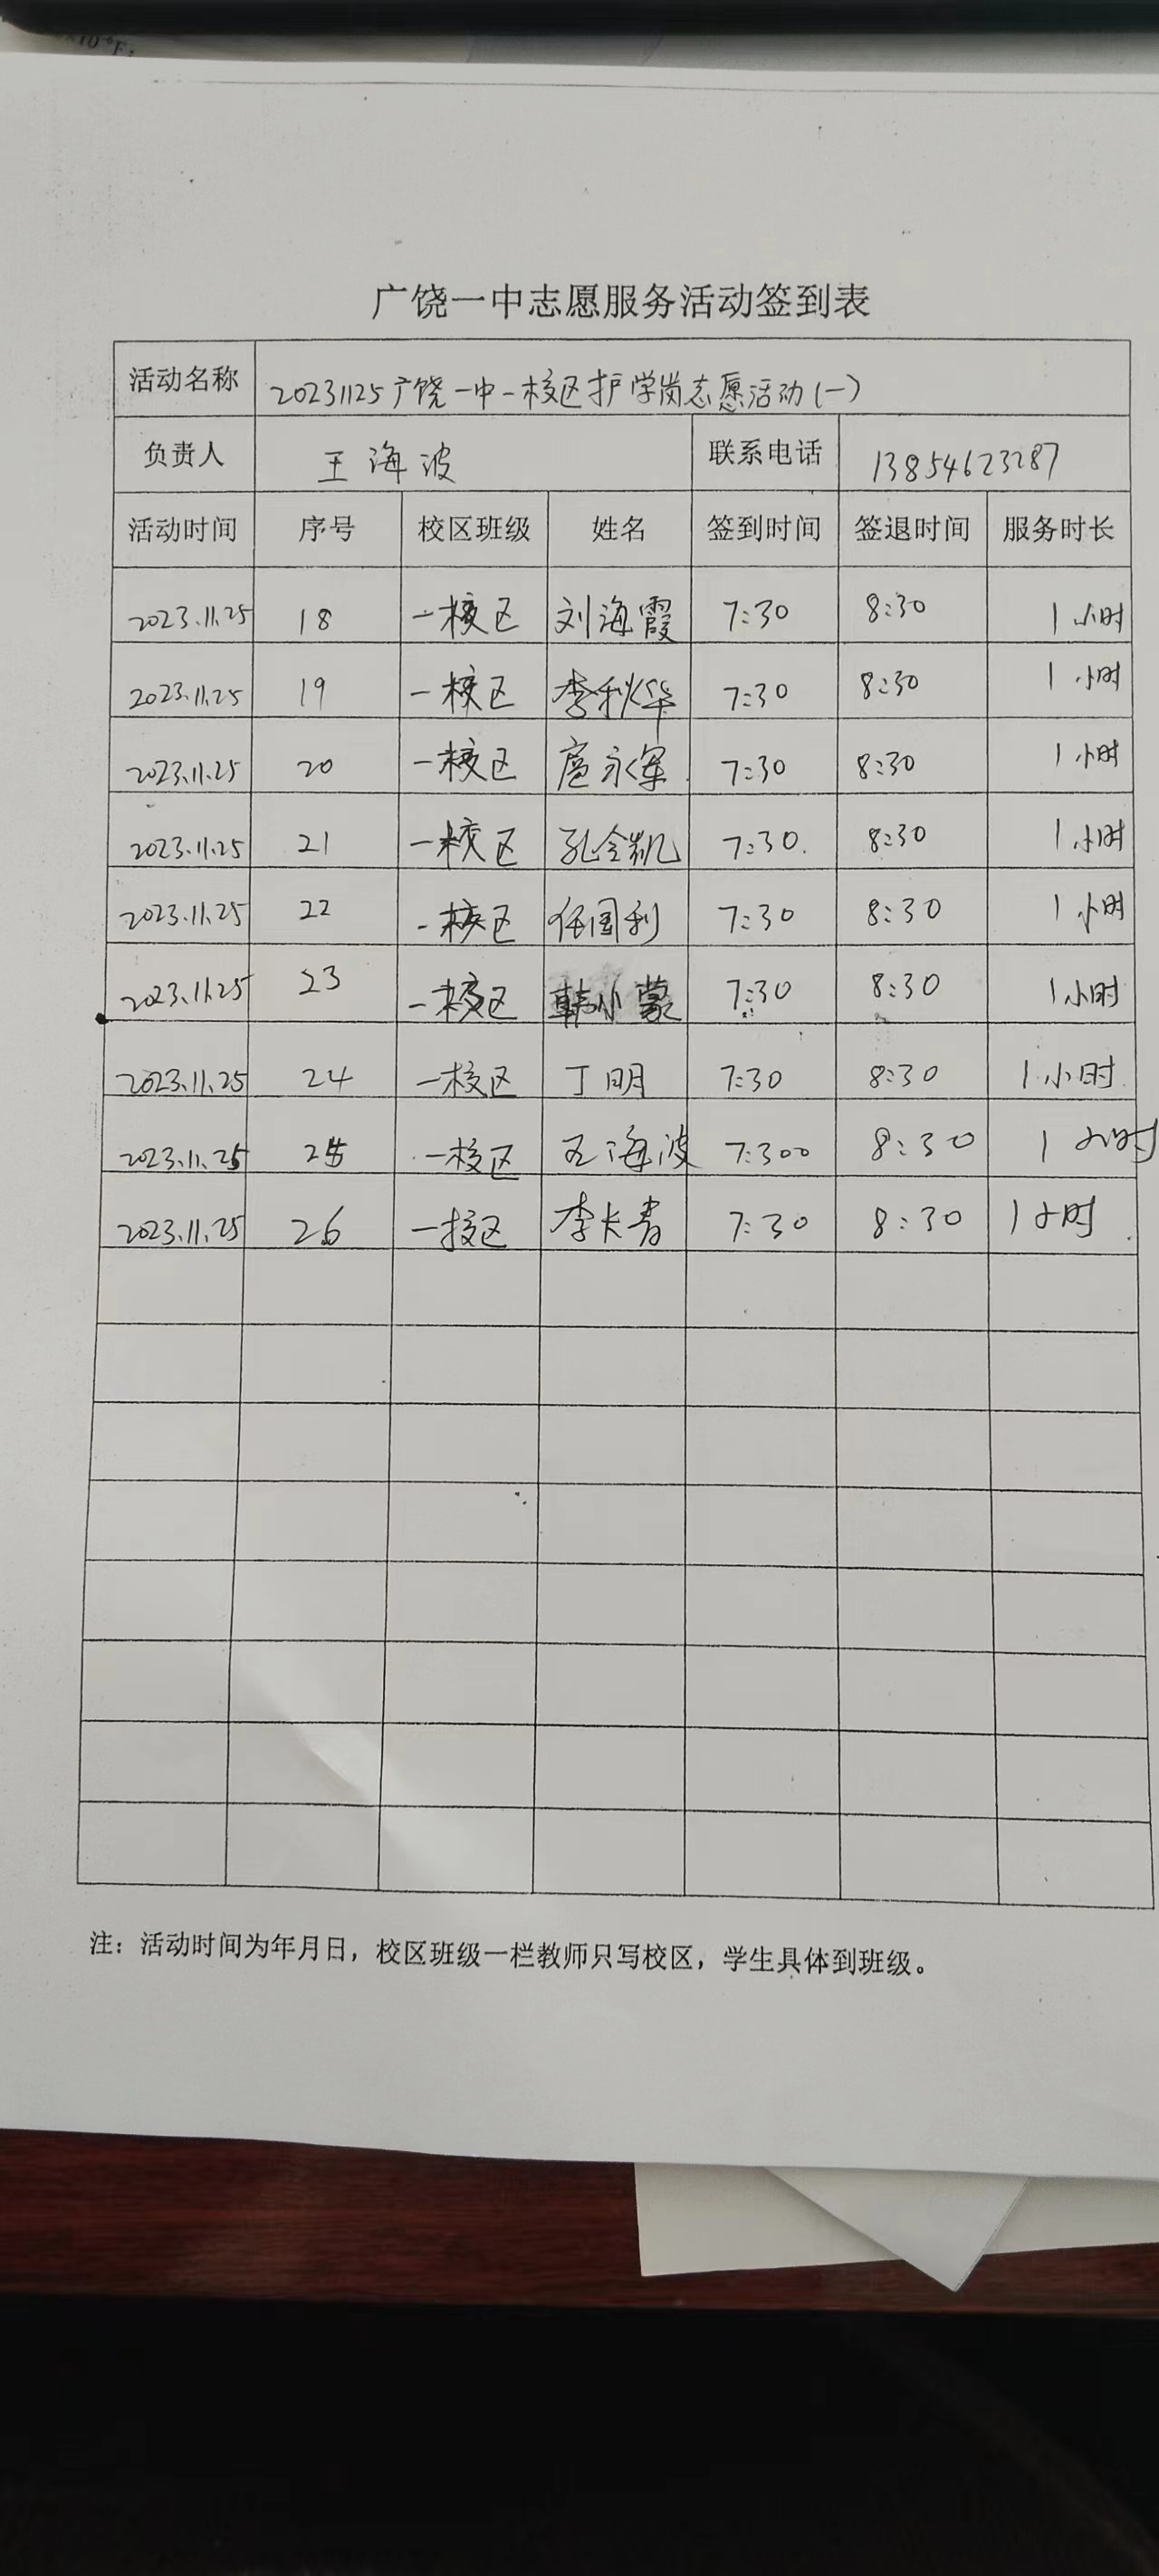 ×10⁻⁶F,
广饶一中志愿服务活动签到表
活动名称 20231125广饶一中一校区护学岗志愿活动(一)
负责人 王海波 联系电话 13854623287
活动时间 序号 校区班级 姓名 签到时间 签退时间 服务时长
2023.11.25 18 一校区 刘海霞 7:30 8:30 1小时
2023.11.25 19 一校区 李秋华 7:30 8:30 1小时
2023.11.25 20 一校区 扈永军 7:30 8:30 1小时
2023.11.25 21 一校区 孔令凯 7:30 8:30 1小时
2023.11.25 22 一校区 任国利 7:30 8:30 1小时
2023.11.25 23 一校区 韩小蒙 7:30 8:30 1小时
2023.11.25 24 一校区 丁明 7:30 8:30 1小时
2023.11.25 25 一校区 王海波 7:300 8:30 1小时
2023.11.25 26 一校区 李长青 7:30 8:30 1小时
注：活动时间为年月日，校区班级一栏教师只写校区，学生具体到班级。